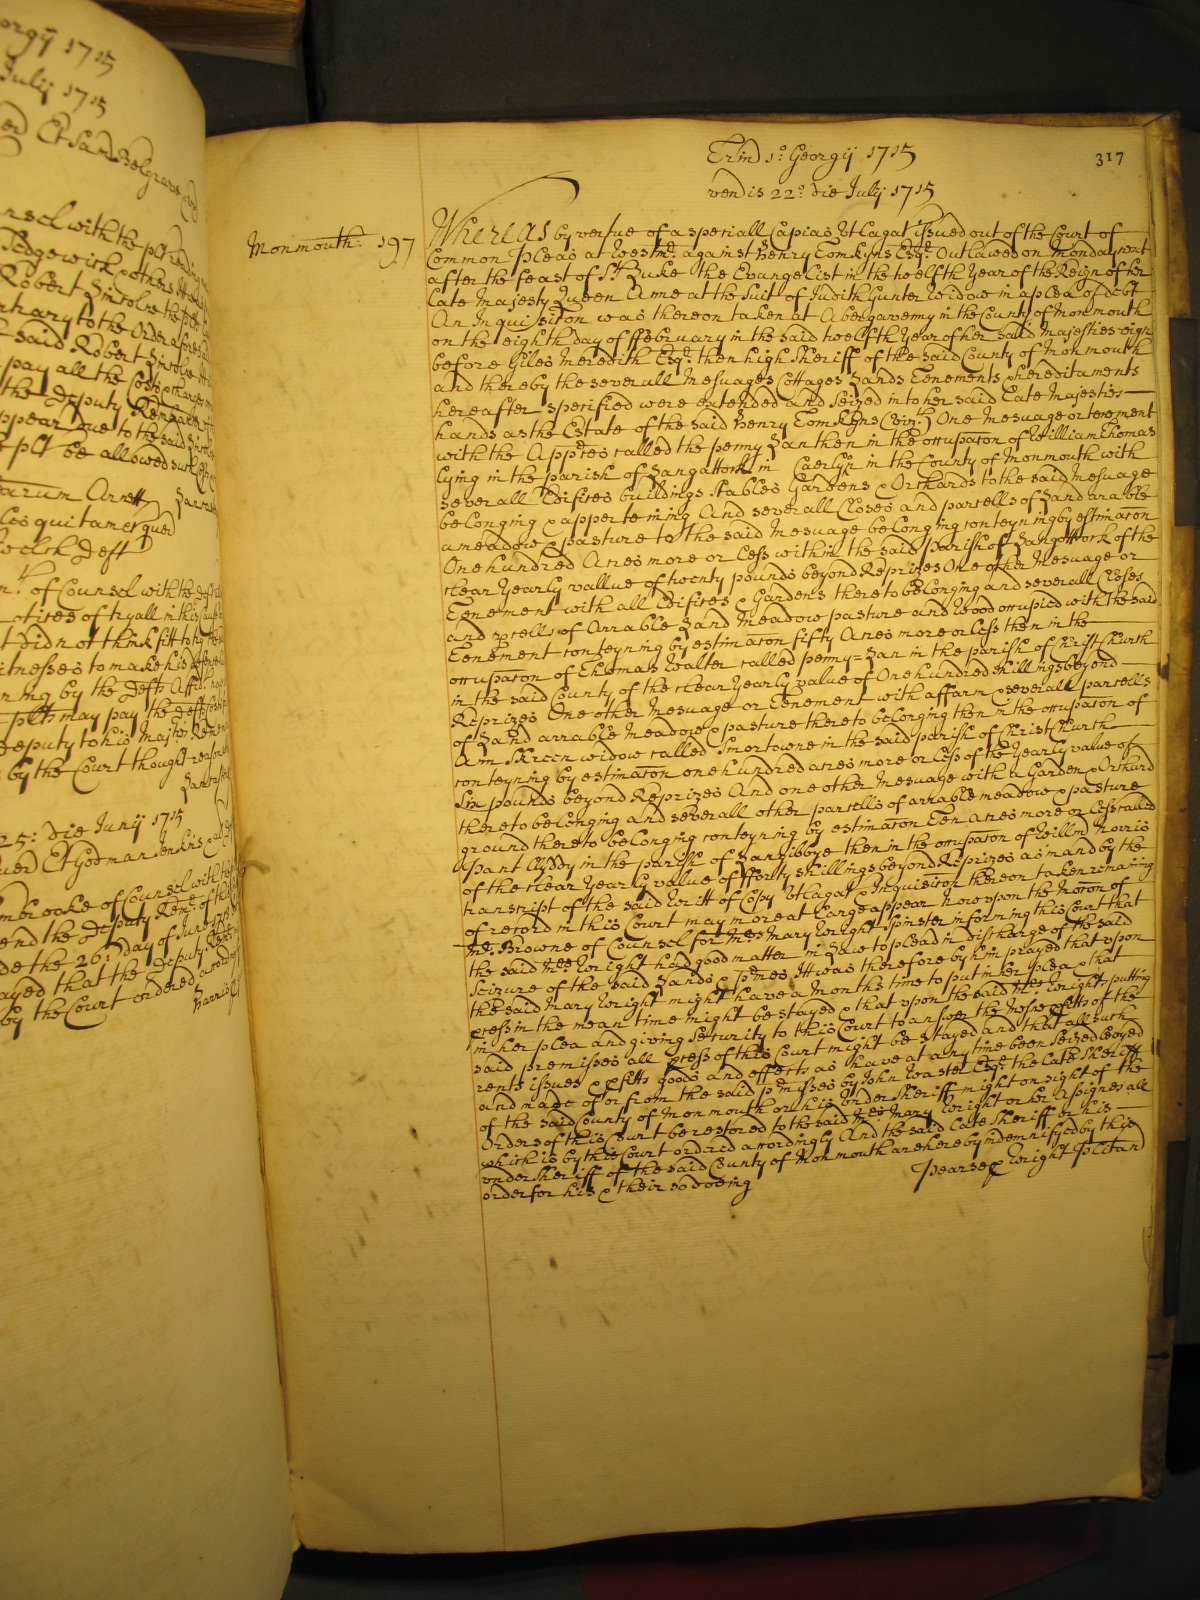 orgij 1715
Julij 1715
ed Et Sam Belgrave
nsel with the plt
Sedgewick & others
Robert Sinvolve the plt
ntrary to the Order
said Robert Sinvolve
pay all the Costs
the Deputy Remem
ppear due to the said
plt be allowed such
arum Arrett
les qui tam er quer
welsh Deft
of Counsel with the defts
tises of tryall in this
t did not think fitt to
itnesses to make his defence
ning by the defts Affidt
plts may pay the defts
Deputy to his Majties
by the Court thought reason
25: die Junij 1715
ued Et Godman Jenkins
mbrooke of Counsel with
end the Deputy Remr: of
de the 26: day of June
ayed that the Deputy
by the Court ordered
Harris
317
Trin 1o: Georgij 1715
venis 22o: die Julij 1715
Monmouth: 197
Whereas by vertue of a speciall Capias Utlagat issued out of the Court of
Common Pleas at Westmr: against Henry Tomkyns Esqr: Outlawed on Monday next
after the feast of St: Luke the Evangelist in the twelfth Year of the Reign of her
late Majesty Queen Anne at the Suit of Judith Gunter Widow in a plea of debt
An Inquisicon was thereon taken at Abergavenny in the County of Monmouth
on the eighth day of ffebruary in the said twelfth Year of her said Majesties reign
before Giles Meredith Esqr: then high Sheriff of the said County of Monmouth
and thereby the severall Mesuages Cottages Lands Tenements & hereditaments
hereafter specified were extended and seized into her said Late Majesties
hands as the Estate of the said Henry Tomkyns (vizt:) One Mesuage or tenement
with the Apptes called the penny Lan then in the occupacon of William Thomas
lying in the parish of Langattock in Caerlyn in the County of Monmouth with
severall Edifices buildings Stables Gardens & Orchards to the said Mesuage
belonging & apperteining And severall Closes and parcells of Land arable
meadow & pasture to the said Mesuage belonging conteyning by estimacon
One hundred Acres more or less within the said parish of Langattock of the
clear Yearly vallue of twenty pounds beyond Reprizes One other Mesuage or
Tenement with all Edifices & Gardens thereto belonging and severall Closes
and pcells of Arrable Land Meadow pasture and Wood occupied with the said
Tenement conteyning by estimacon fifty Acres more or less then in the
occupacon of Thomas Walter called penny=Lan in the parish of Christ Church
in the said County of the clear Yearly value of One hundred shillings beyond
Reprizes One other Mesuage or Tenement with a ffarm & severall parcells
of Land arrable meadow & pasture thereto belonging then in the occupacon of
Ann Skreen widow called Smortowne in the said parish of Christ Church
conteyning by estimacon one hundred acres more or less of the Yearly value of
Six pounds beyond Reprizes And one other Mesuage with a Garden & Orchard
thereto belonging and severall other parcells of arrable meadow & pasture
ground thereto belonging conteyning by estimacon Ten Acres more or less called
pant Glyddy in the parish of Langibbye then in the occupacon of Willm Norris
of the clear Yearly value of fforty shillings beyond Reprizes as in and by the
transcript of the said Writt of Copy Utlagat & Inquisicon thereon taken remaining
of record in this Court may more at large appear Now upon the Mocon of
Mr: Browne of Counsel for Mrs Mary Wright Spinster informing this Court that
the said Mrs Wright had good matter in Law to plead in discharge of the said
seizure of the said Lands & pmes It was therefore by him prayed that upon
the said Mary Wright might have a Months time to put in her plea & that
pcess in the mean time might be stayed & that upon the said Mrs Wrights putting
in her plea and giving security to this Court to answer the Mesne pfitts of the
said premisses all pcess of this Court might be stayed and that all such
rents issues & pfitts goods and effects as have at any time been seized levyed
and made of or from the said pmisses by John Waster Esqr: the late Sheriff
of the said County of Monmouth or his under Sheriff might on sight of the
Orders of this Court be restored to the said Mrs Mary Wright or her Assignes all
which is by this Court ordred accordingly And the said late Sheriff or his
under Sheriff of the said County of Monmouth are hereby indemnifyed by this
order for his & their so doeing
Pearse p Wright Plitand